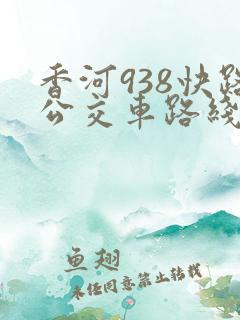 香河938快路
公交车路线
鱼翅
未经同意禁止转载